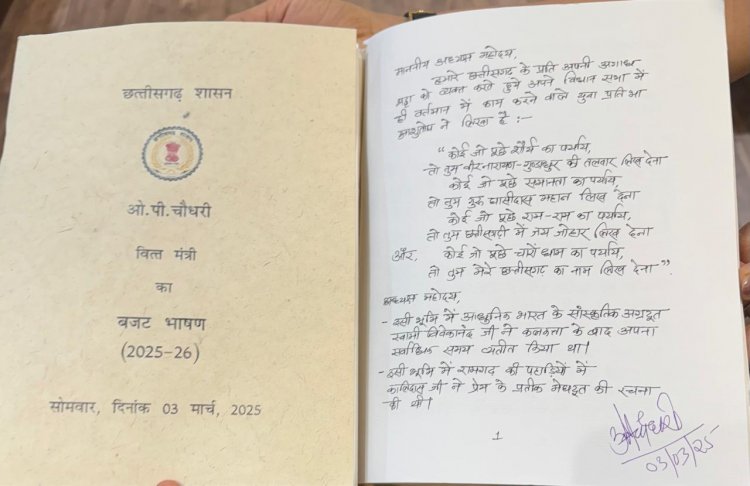 छत्तीसगढ़ शासन
ओ.पी.चौधरी
वित्त मंत्री
का
बजट भाषण
(2025-26)
सोमवार, दिनांक 03 मार्च, 2025
माननीय अध्यक्ष महोदय,
हमारे छत्तीसगढ़ के प्रति अपनी अगाध
श्रद्धा को व्यक्त करते हुये अपने विधान सभा में
ही वर्तमान में काम करने वाले युवा प्रतिभा
ने लिखा है :-
“ कोई जो पूछे शौर्य का पर्याय,
तो तुम वीरनारायण-गुण्डाधुर की तलवार लिख देना
कोई जो पूछे समानता का पर्याय,
तो तुम गुरु घासीदास महान लिख देना
कोई जो पूछे राम-राम का पर्याय,
तो तुम छत्तीसगढ़ी में जय जोहार लिख देना
और, कोई जो पूछे चारों धाम का पर्याय,
तो तुम मेरे छत्तीसगढ़ का नाम लिख देना ”.
अध्यक्ष महोदय,
- इसी भूमि में आधुनिक भारत के सांस्कृतिक अग्रदूत
स्वामी विवेकानंद जी ने कलकत्ता के बाद अपना
सर्वाधिक समय व्यतीत किया था।
- इसी भूमि में रामगढ़ की पहाड़ियों में
कालिदास जी ने प्रेम के प्रतीक मेघदूत की रचना
की थी।
1
03/03/25